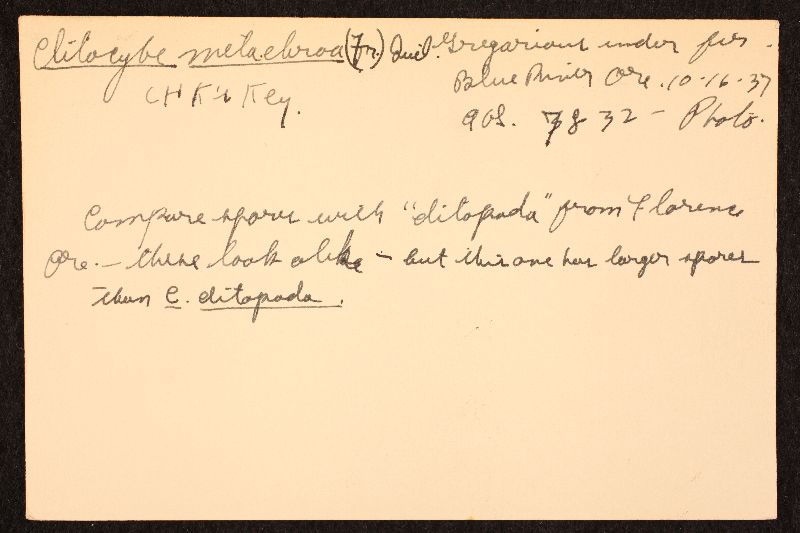 Clitocybe metachroa (Fr.) Quél. Gregarious under firs.
CHK's Key.
Blue River Ore. 10-16-37
AOS. 7832 - Photo.
Compare spores with "ditopoda" from Florence
Ore. - these look alike - but this one has larger spores
than C. ditopoda.